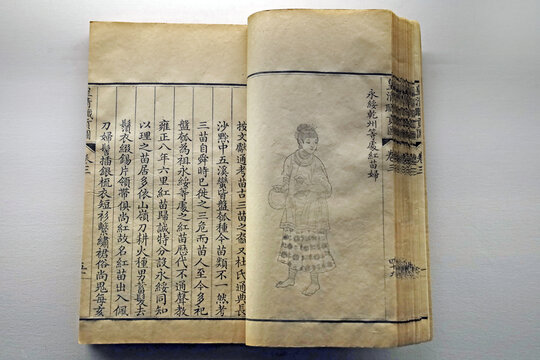 永綏乾州等處紅苗婦
按文獻通考苗古三苗之裔又杜氏通典長
沙黔中五溪蠻皆盤瓠種今苗類不一然考
三苗自舜時已徙之三危而苗人至今多祀
盤瓠為祖永綏等處之紅苗歷代不通聲教
雍正八年六里紅苗歸誠特分設永綏同知
以理之苗居多依山嶺刀耕火種男薙髮去
鬚衣綴錫片領帶俱尚紅故名紅苗出入佩
刀婦髻插銀梳衣短衫繫繡裙俗尚鬼每亥
皇清職貢圖
卷三
皇清職貢圖
卷三